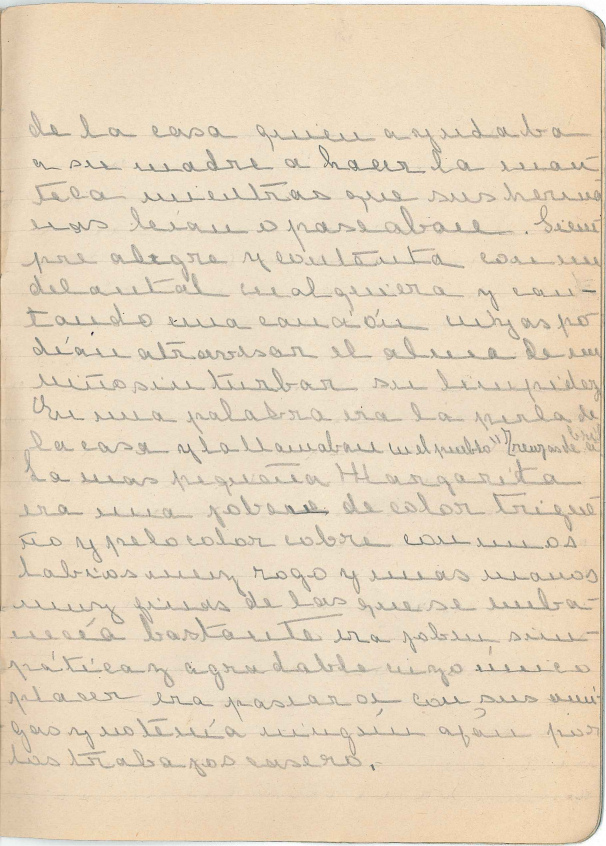 de la casa quien ayudaba
a su madre a hacer la man
teca mientras que sus herma
nas leian o paseaban. Siem
pre alegre y contenta con un
delantal cualquiera y can-
tando una canción cuyas po
dían atravisar el alma de un
niño sin turbar su limpidez
En una palabra era la perla de
la casa y la llamaban en el pueblo "
La mas pequeña Margarita
era una jobene de color trigue
ño y pelo color cobre con unos
labios muy rogo y unas manos
muy finas de las que se enba-
necéa bastante era jobin sim-
pática y agradable cuyo único
placer era pasear se con sus ami-
gas y no tenía ningún afan por
los trabajos casero.